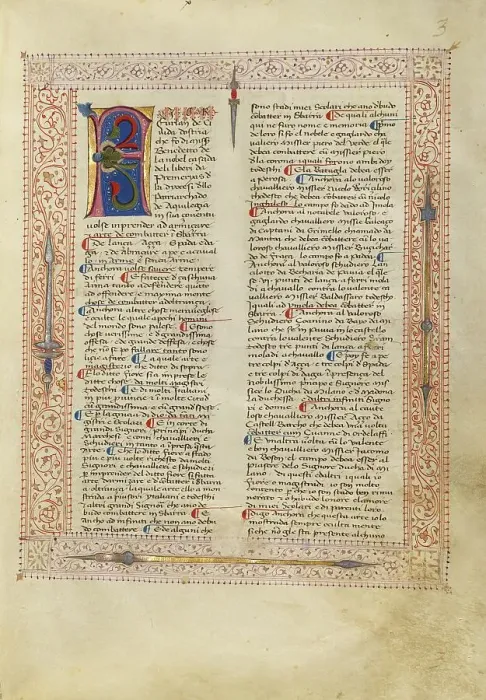 3
Furlan de Ci
vida dostria
che fo di missier
Benedetto de
la nobel casada
deli liberi da
Premergias d
la dyocesi dello
Patriarchado
de Aquilegia
in sua çuuentu
volse imprender ad armiçare
e arte de combatter i sbarra
De lança Açça Spada e da
ga e de abraçare a pe e a caual
lo in arme e sença arme
Anchora volse sauere tempere
di ferri E fateçe de çaschuna
Arma tanto a defendere quanto
ad offendere e maximamente
chose de combatter ad oltrança
Anchora altre chose meraueglose
e oculte le quale a pochi homini
del mondo sono palese E sono
chose verissime e de grandissima
offesa e de grande deffesa e chose
che non se po fallare tanto sono
ligiere a fare La quale arte e
magisterio che ditto di sopra
E lo ditto Fiore sia impreso le
ditte chose da molti magistri
todeschi E di molti Italiani
in piu prouincie e in molte Citad
cum grandissima e cum grande spese
E per la gratia di dio da tanti Ma
gistri e Scolari E in corte di
grandi Signori Principi duchi
Marchesi e conti chauallieri e
Schudieri in tanto a impresa questa
Arte Che lo ditto Fiore a stado
piu e piu volte richesto da molti
Signori e chauallieri e schudieri
per imprender del ditto Fiore si fatta
arte d'armiçare e de combatter i sbarra
a oltrança la quale arte ello a mon
strada a piusori ytaliani e todeschi
e altri grandi Signori che ano de
bu combattere in sbarra E
ancho ad infiniti che non ano debu
do combattere E de alguni che
sono stadi miei Scolari che ano debudo
cobatter in sbarra De quali alchuni
qui ne faro nome e memoria Como
de loro si fo el nobele e gagliardo cha
valliero missier Piero del verde el qle
deba combattere cum missier piero
dela corona i quali forono ambidoy
todeschi E la Bataglia deba esser
a perosa Anchora al valoroso
chaualliero missier Nicolo Voriçilino
thodesco che deba cobatter cum nicolo
Inghileso Lo campo fo dado ad Imola
Anchora al notabele valoroso e
gagliardo chaualliero missier Galeaço
di Captani da Grimello chamado da
Mantoa che debea combattere cum lo va
loroso chaualliero missier Buçichar
do de fraça lo campo fo a padoa
Anchora al valoroso schudiero Lan
cilotto da Becharia de pauia el qle
fe vj punti de lança a ferri mola
di a chauallo contra lo valente ca
valliero missier Baldassaro todescho
I quali ad ymola debea cobatter in
sbarra Anchora al valoroso
Schudiero Çoanino da Bayo di mi
lano che fe in pauia in lo castello
contra lo valente Schudiero Gram
todesco tre punti di lança a ferri
moladi a chauallo E poy fe a pe
tre colpi d'açça e tre colpi d'spada
e tre colpi di daga in presença del
nobelissimo principo e Signore mis
sier lo Ducha di Milano e d'madona
la duchessa e d'altri infiniti Signo
ri e donne Anchora al caute
loso chaualliero missier Açço da
Castell Barcho che deba una volta
cobatter cum Çuanne di ordelaffi
E un altra uolta cum lo valente
e bon chaualliero missier Jacomo
da Boson el campo debea esser al
piasere de lo Signore ducha di mi
lano di questi e d'altri i quali io
fiore o magistradi io son molto
contento perche io son stado ben rimu
nerato e o habiudo l'onore e l'amore
di miei Scolari e di parenti loro
Digo anchora che questa arte io l'o
mostrada sempre oculta mente
siche non gle sta presente alchuno